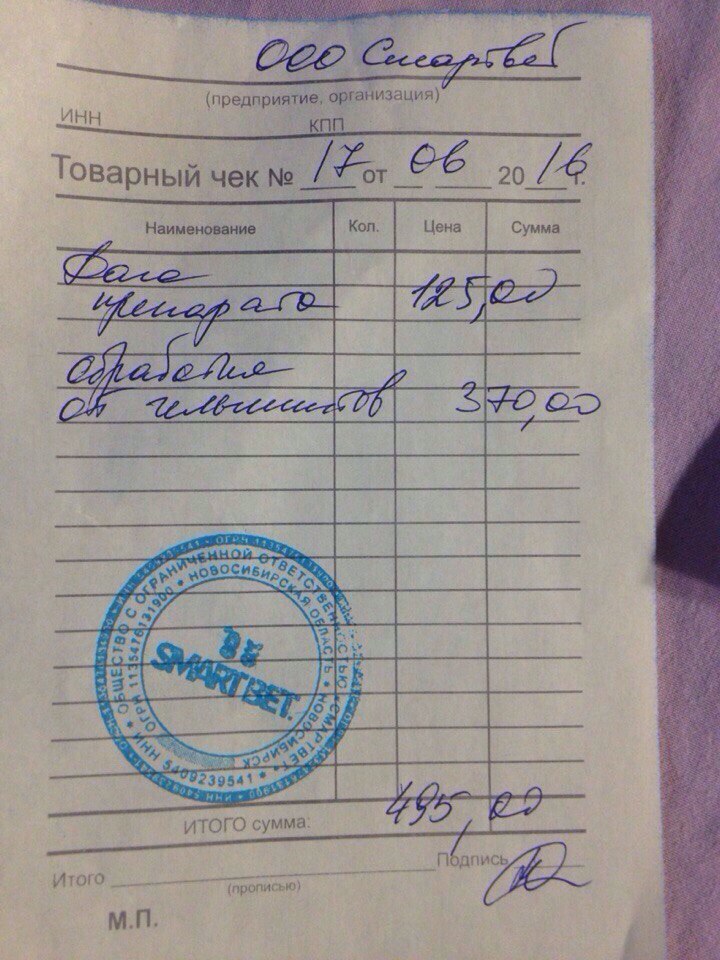 ООО Смартвет
(предприятие, организация)
ИНН КПП
Товарный чек № 17 от 06 2016 г.
Наименование Кол. Цена Сумма
Доза
препарата 125,00
обработка
от гельминтов 370,00
ОБЩЕСТВО С ОГРАНИЧЕННОЙ ОТВЕТСТВЕННОСТЬЮ «СМАРТВЕТ»
ИНН 5409239541 * ОГРН 1135476131900
* НОВОСИБИРСКАЯ ОБЛАСТЬ * НОВОСИБИРСК
SMARTВЕТ.
ИТОГО сумма: 495,00
Итого Подпись
(прописью)
М.П.